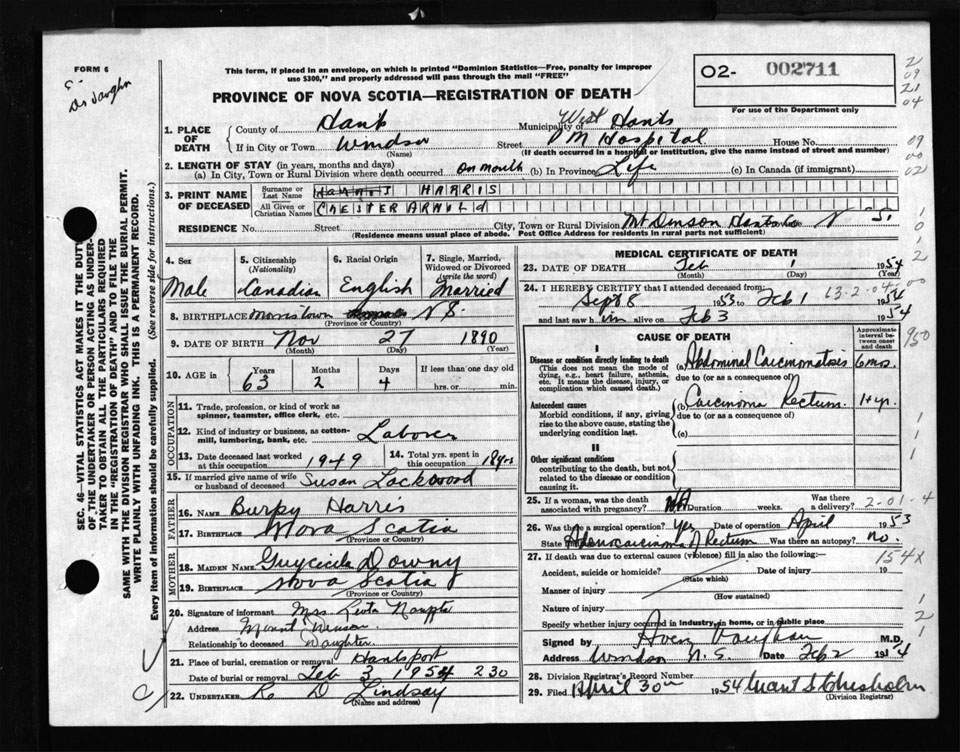 FORM 6
Dr Vaughn
This form, if placed in an envelope, on which is printed "Dominion Statistics—Free, penalty for improper
use $300," and properly addressed will pass through the mail "FREE"
PROVINCE OF NOVA SCOTIA—REGISTRATION OF DEATH
02- 002711
For use of the Department only
2
09
21
04
09
00
02
SEC. 46—VITAL STATISTICS ACT MAKES IT THE DUTY
OF THE UNDERTAKER OR PERSON ACTING AS UNDER-
TAKER TO OBTAIN ALL THE PARTICULARS REQUIRED
IN THE "REGISTRATION OF DEATH" AND TO FILE THE
SAME WITH THE DIVISION REGISTRAR WHO SHALL ISSUE THE BURIAL PERMIT.
WRITE PLAINLY WITH UNFADING INK. THIS IS A PERMANENT RECORD.
Every item of information should be carefully supplied. (See reverse side for instructions.)
1. PLACE OF DEATH
County of Hants Municipality of West Hants
If in City or Town Windsor Street Hospital House No.
(Name) (If death occurred in a hospital or institution, give the name instead of street and number)
2. LENGTH OF STAY (in years, months and days)
(a) In City, Town or Rural Division where death occurred on month (b) In Province Life (c) In Canada (if immigrant)
3. PRINT NAME OF DECEASED
Surname or Last Name HARRIS
All Given or Christian Names CHESTER ARNOLd
RESIDENCE No. Street City, Town or Rural Division Mt Denson Hants Co N S.
(Residence means usual place of abode. Post Office Address for residents in rural parts not sufficient)
4. Sex Male
5. Citizenship (Nationality) Canadian
6. Racial Origin English
7. Single, Married, Widowed or Divorced (write the word) Married
8. BIRTHPLACE Morristown N S
(Province or Country)
9. DATE OF BIRTH Nov 27 1890
(Month) (Day) (Year)
10. AGE in Years 63 Months 2 Days 4 If less than one day old hrs. or min.
OCCUPATION
11. Trade, profession, or kind of work as spinner, teamster, office clerk, etc.
12. Kind of industry or business, as cotton-mill, lumbering, bank, etc. Laborer
13. Date deceased last worked at this occupation 1949 14. Total yrs. spent in this occupation 18 yrs
15. If married give name of wife or husband of deceased Susan Lockwood
FATHER
16. NAME Burpy Harris
17. BIRTHPLACE Nova Scotia
(Province or Country)
MOTHER
18. MAIDEN NAME Downy
19. BIRTHPLACE Nova Scotia
(Province or Country)
20. Signature of informant Mrs. Leota
Address Mount Denson
Relationship to deceased Daughter
21. Place of burial, cremation or removal Hantsport
Date of burial or removal Feb 3 1954 2 30
22. UNDERTAKER R D Lindsay
(Name and address)
MEDICAL CERTIFICATE OF DEATH
23. DATE OF DEATH Feb 1 1954
(Month) (Day) (Year)
24. I HEREBY CERTIFY that I attended deceased from: 13-2-04
Sept 8 1953 to Feb 1 1954
and last saw him alive on Feb 3 1954
CAUSE OF DEATH
Approximate interval between onset and death
I
Disease or condition directly leading to death
(This does not mean the mode of dying, e.g., heart failure, asthenia, etc. It means the disease, injury, or complication which caused death.)
(a) Abdominal Carcinomatosis 6 mos.
due to (or as a consequence of)
Antecedent causes
Morbid conditions, if any, giving rise to the above cause, stating the underlying condition last.
(b) Carcinoma Rectum. 1+ yr.
due to (or as a consequence of)
(c)
II
Other significant conditions
contributing to the death, but not related to the disease or condition causing it.
25. If a woman, was the death associated with pregnancy? NA Duration weeks. Was there a delivery? 2-01-4
26. Was there a surgical operation? Yes Date of operation April 1953
State Adenocarcinoma of Rectum Was there an autopsy? No.
27. If death was due to external causes (violence) fill in also the following:— 154X
Accident, suicide or homicide? Date of injury 19
(State which)
Manner of injury
(How sustained)
Nature of injury
Specify whether injury occurred in industry, in home, or in public place
Signed by Vaughan M.D.
Address Windsor N. S. Date Feb 2 1954
28. Division Registrar's Record Number
29. Filed April 30 1954 Grant S Chisholm
(Division Registrar)